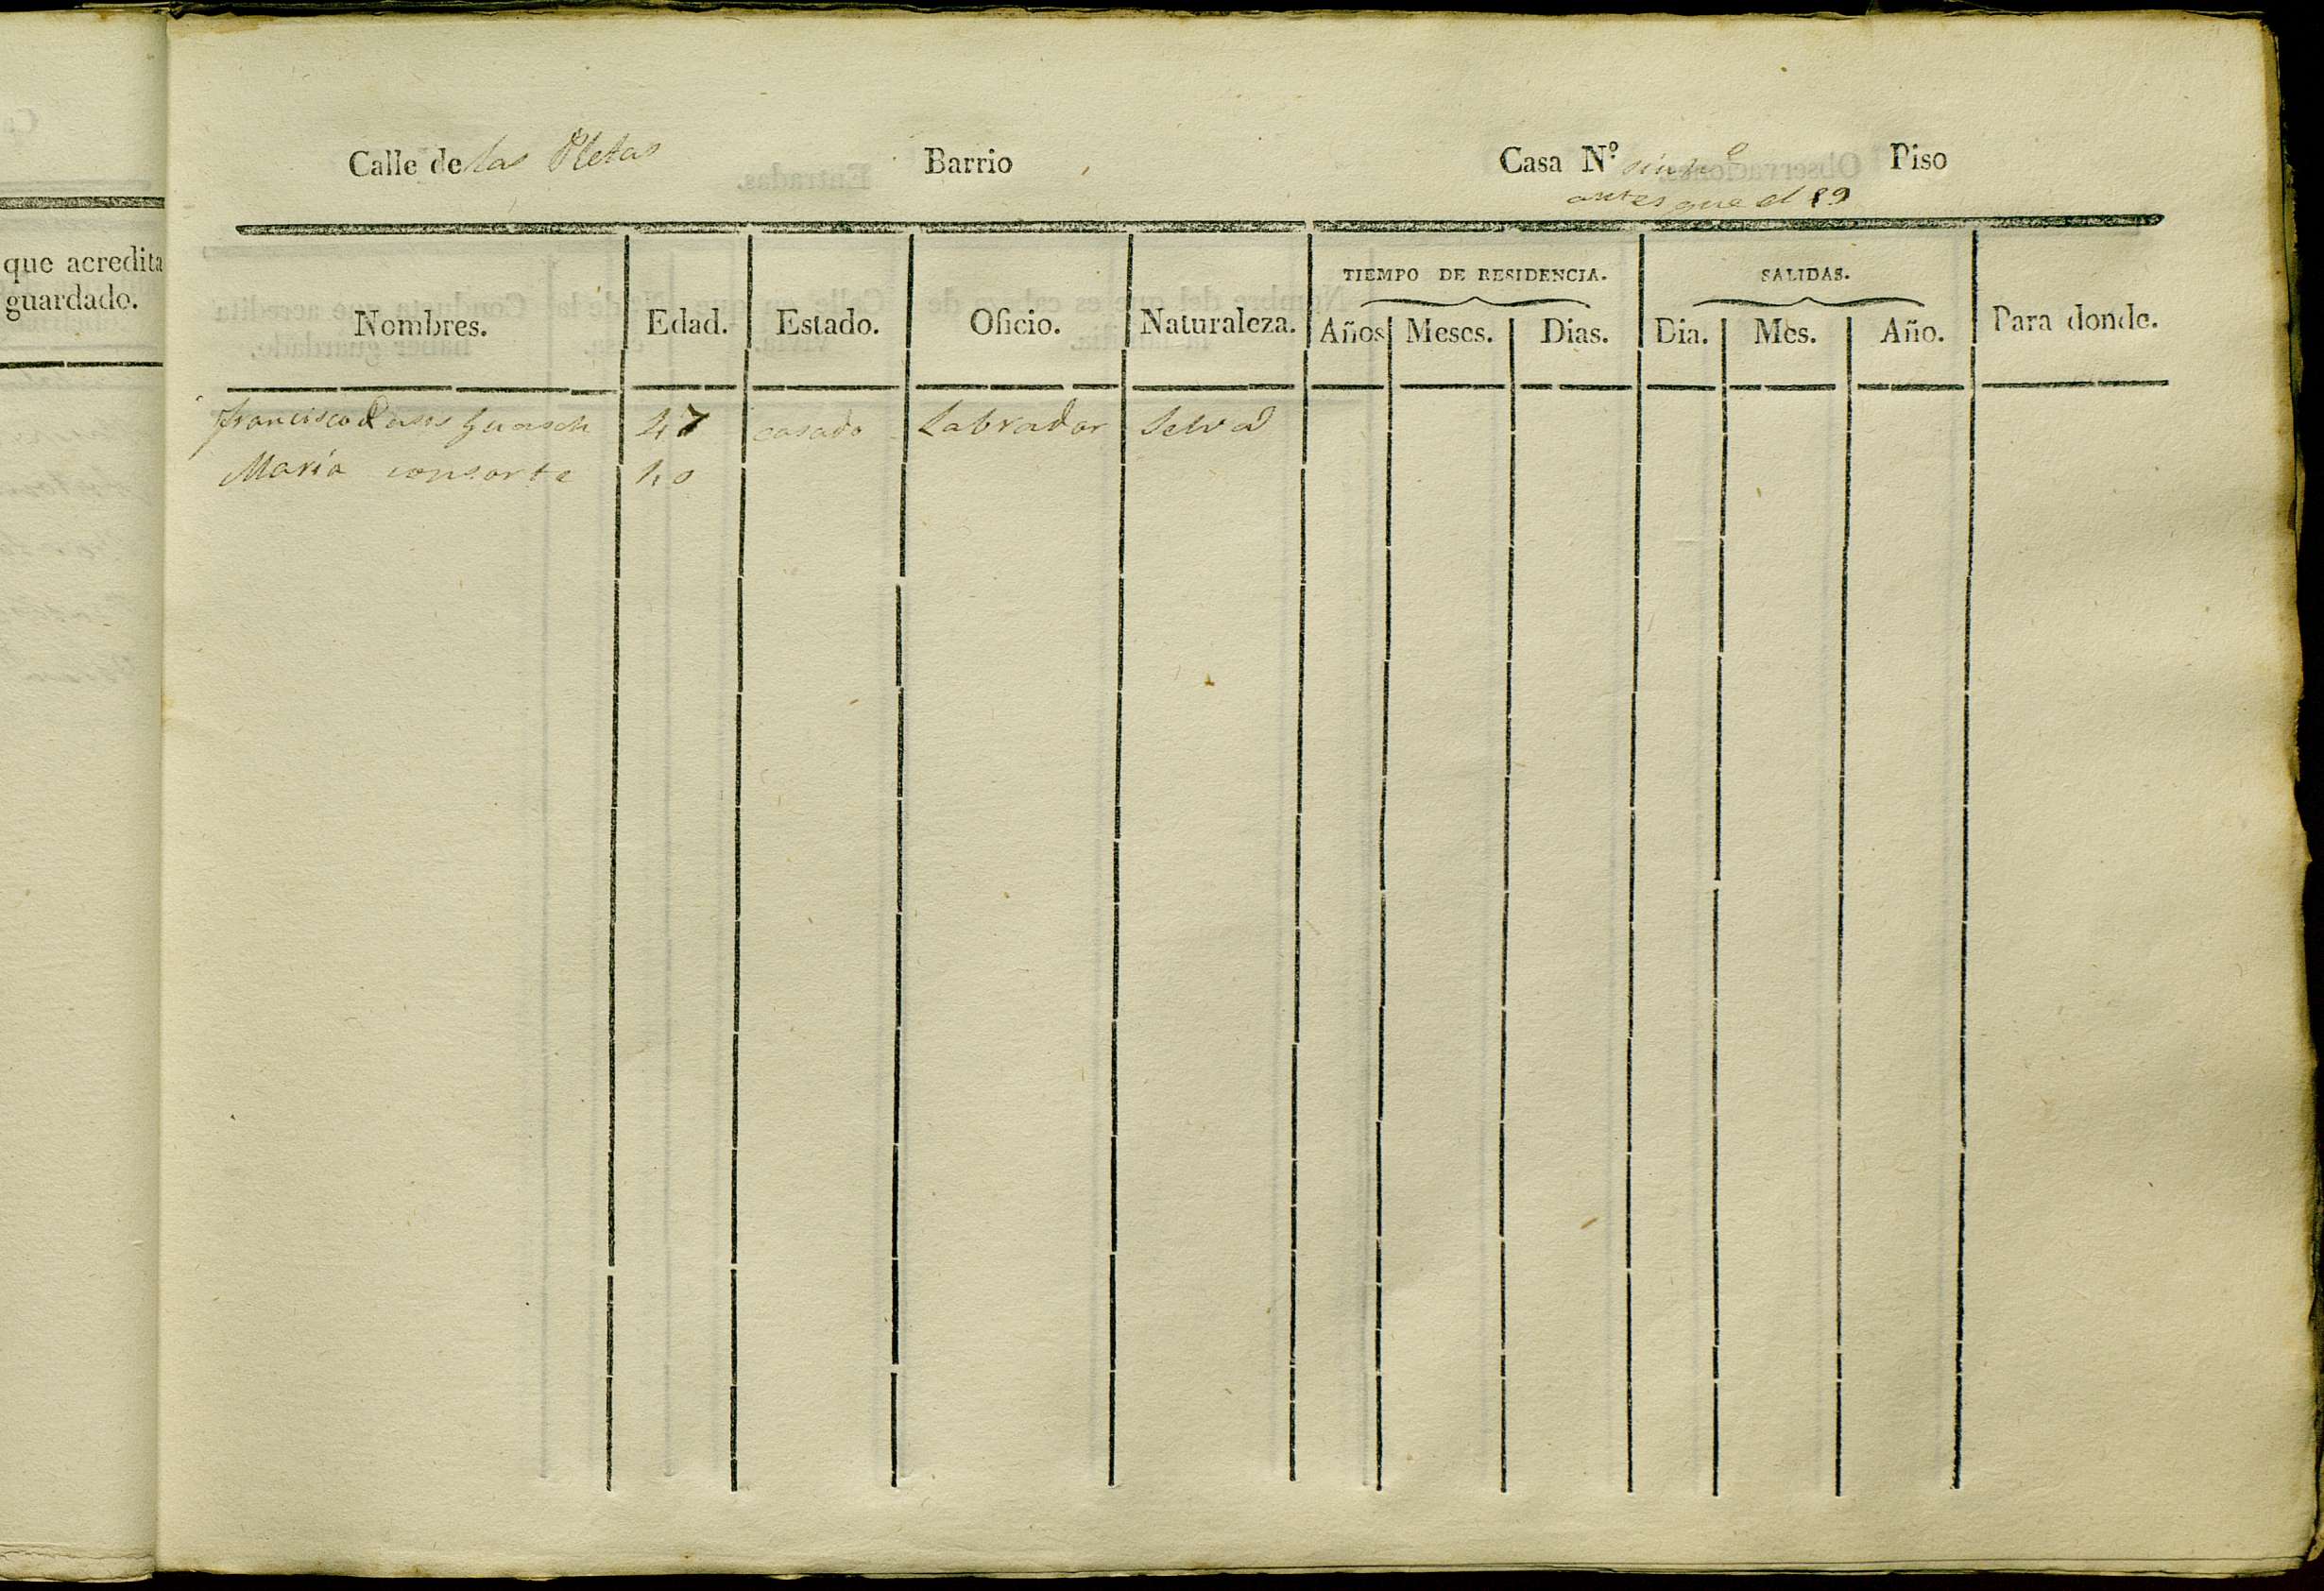 que acredita
guardado.
Calle de las Pletas Barrio Casa N.º sin nº Piso
antes que el 89
TIEMPO DE RESIDENCIA. SALIDAS.
Nombres. Edad. Estado. Oficio. Naturaleza. Años Meses. Dias. Dia. Mes. Año. Para donde.
Francisco Guasch 47 casado Labrador Selva
Maria consorte 40